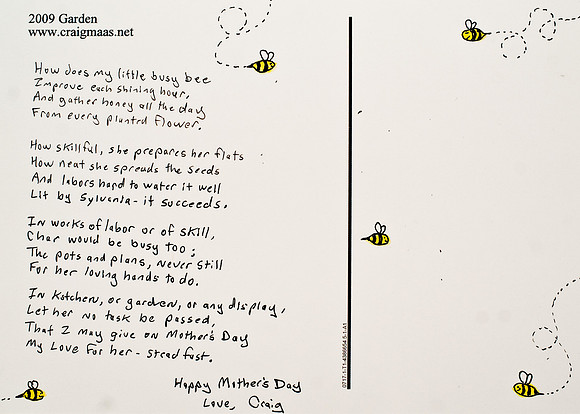 2009 Garden
www.craigmaas.net
How does my little busy bee
Improve each shining hour,
And gather honey all the day
From every planted flower.
How skillful, she prepares her flats
How neat she spreads the seeds
And labors hard to water it well
Lit by Sylvania - it succeeds.
In works of labor or of skill,
Char would be busy too;
The pots and plans, never still
For her loving hands to do.
In kitchen, or garden, or any display,
Let her no task be passed,
That I may give on Mother's Day
My Love For her - steadfast.
Happy Mother's Day
Love, Craig